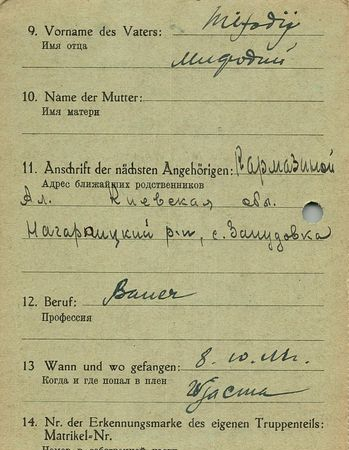 9. Vorname des Vaters: Mefodij
Имя отца
Мифодий
10. Name der Mutter:
Имя матери
11. Anschrift der nächsten Angehörigen: Кармазиной
Адрес ближайших родственников
Ал. Киевская обл.
р-н, с.
12. Beruf: Bauer
Профессия
13 Wann und wo gefangen: 8.10.41.
Когда и где попал в плен
14. Nr. der Erkennungsmarke des eigenen Truppenteils:
Matrikel=Nr.